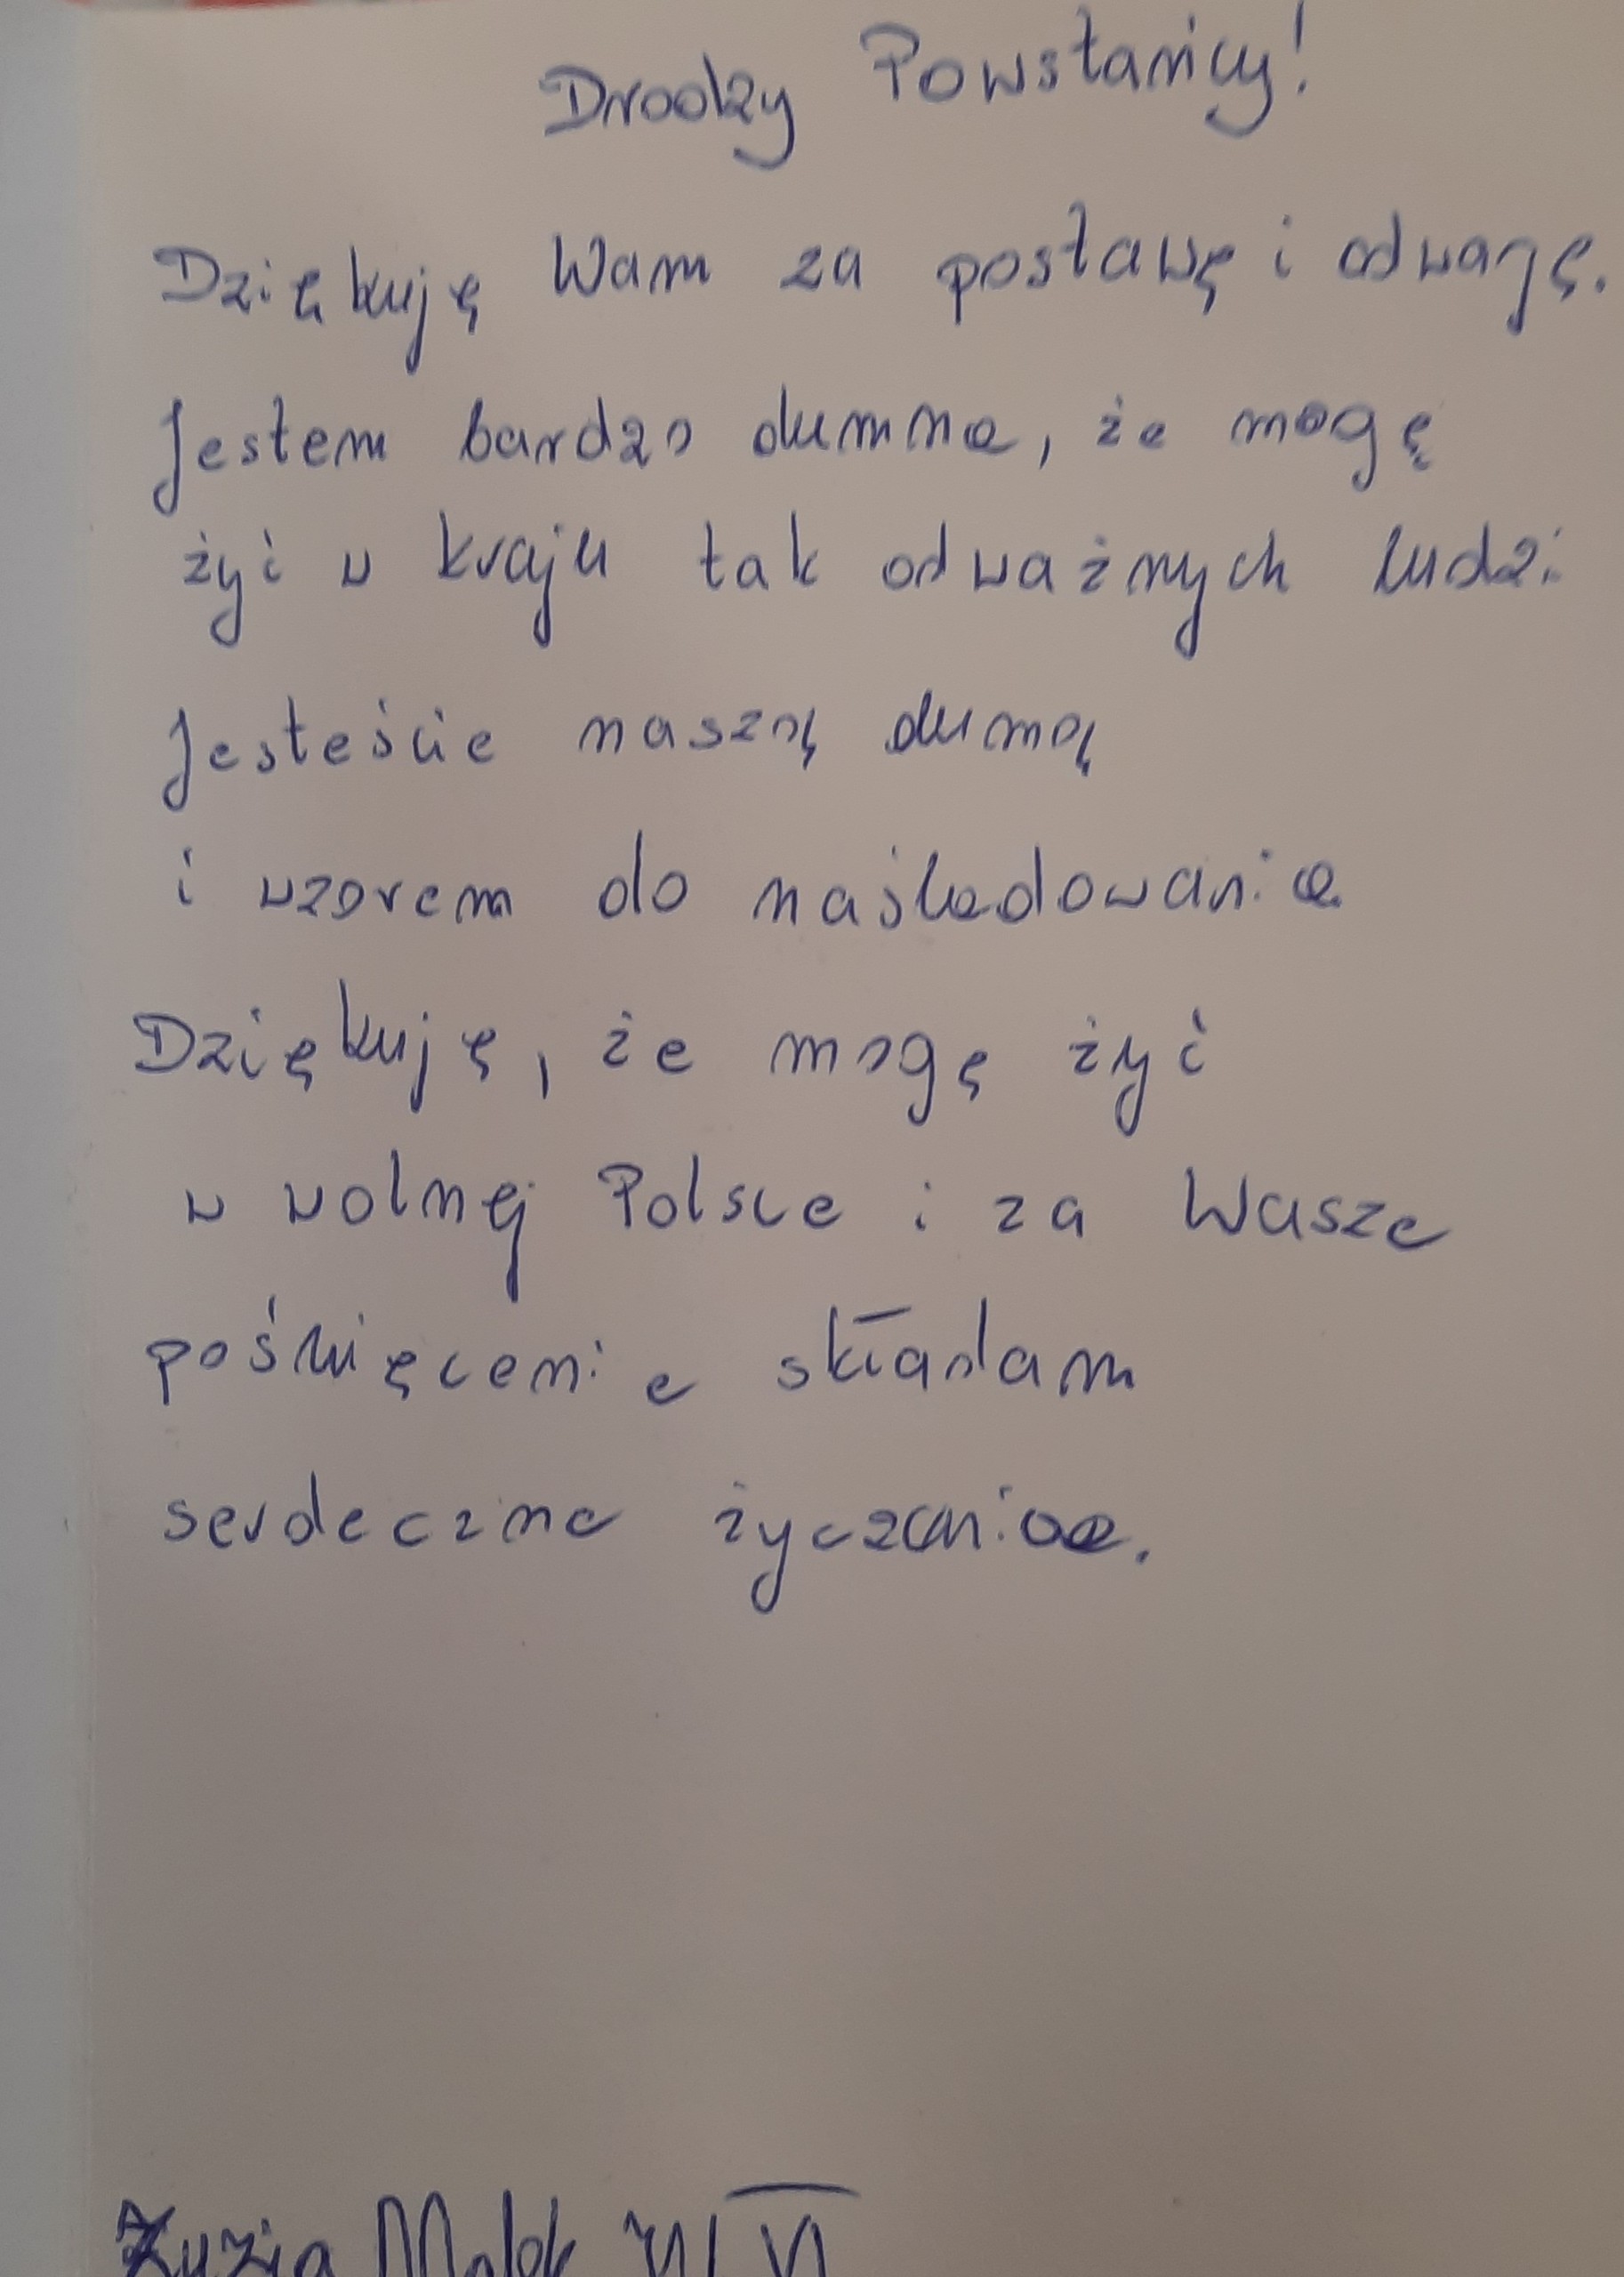 Drodzy Powstańcy!
Dziękuję Wam za postawę i odwagę.
Jestem bardzo dumna, że mogę
żyć w kraju tak odważnych ludzi
Jesteście naszą dumą
i wzorem do naśladowania
Dziękuję, że mogę żyć
w wolnej Polsce i za Wasze
poświęcenie składam
serdeczne życzenia.
Zuzia